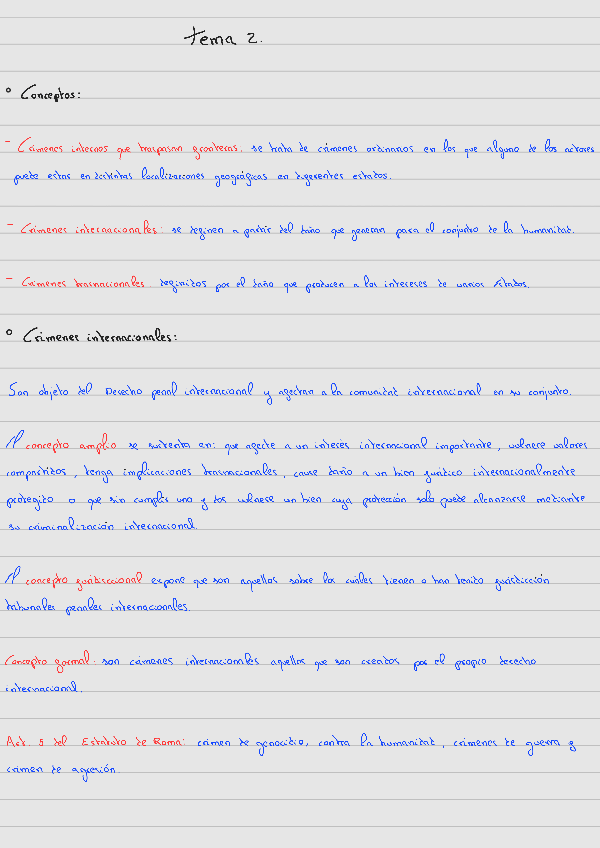 Tema 2.
° Conceptos:
- Crímenes internos que traspasan fronteras: se trata de crímenes ordinarios en los que alguno de los actores
puede estar en distintas localizaciones geográficas en diferentes estados.
- Crímenes internacionales: se definen a partir del daño que generan para el conjunto de la humanidad.
- Crímenes trasnacionales: definidos por el daño que producen a los intereses de varios Estados.
° Crímenes internacionales:
Son objeto del Derecho penal internacional y afectan a la comunidad internacional en su conjunto.
El concepto amplio se sustenta en: que afecte a un interés internacional importante, vulnere valores
compartidos, tenga implicaciones trasnacionales, cause daño a un bien jurídico internacionalmente
protegido o que sin cumplir uno y dos vulnere un bien cuya protección solo puede alcanzarse mediante
su criminalización internacional.
El concepto jurisdiccional expone que son aquellos sobre los cuáles tienen o han tenido jurisdicción
tribunales penales internacionales.
Concepto formal: son crímenes internacionales aquellos que son creados por el propio derecho
internacional.
Art. 5 del Estatuto de Roma: crimen de genocidio, contra la humanidad, crímenes de guerra y
crimen de agresión.